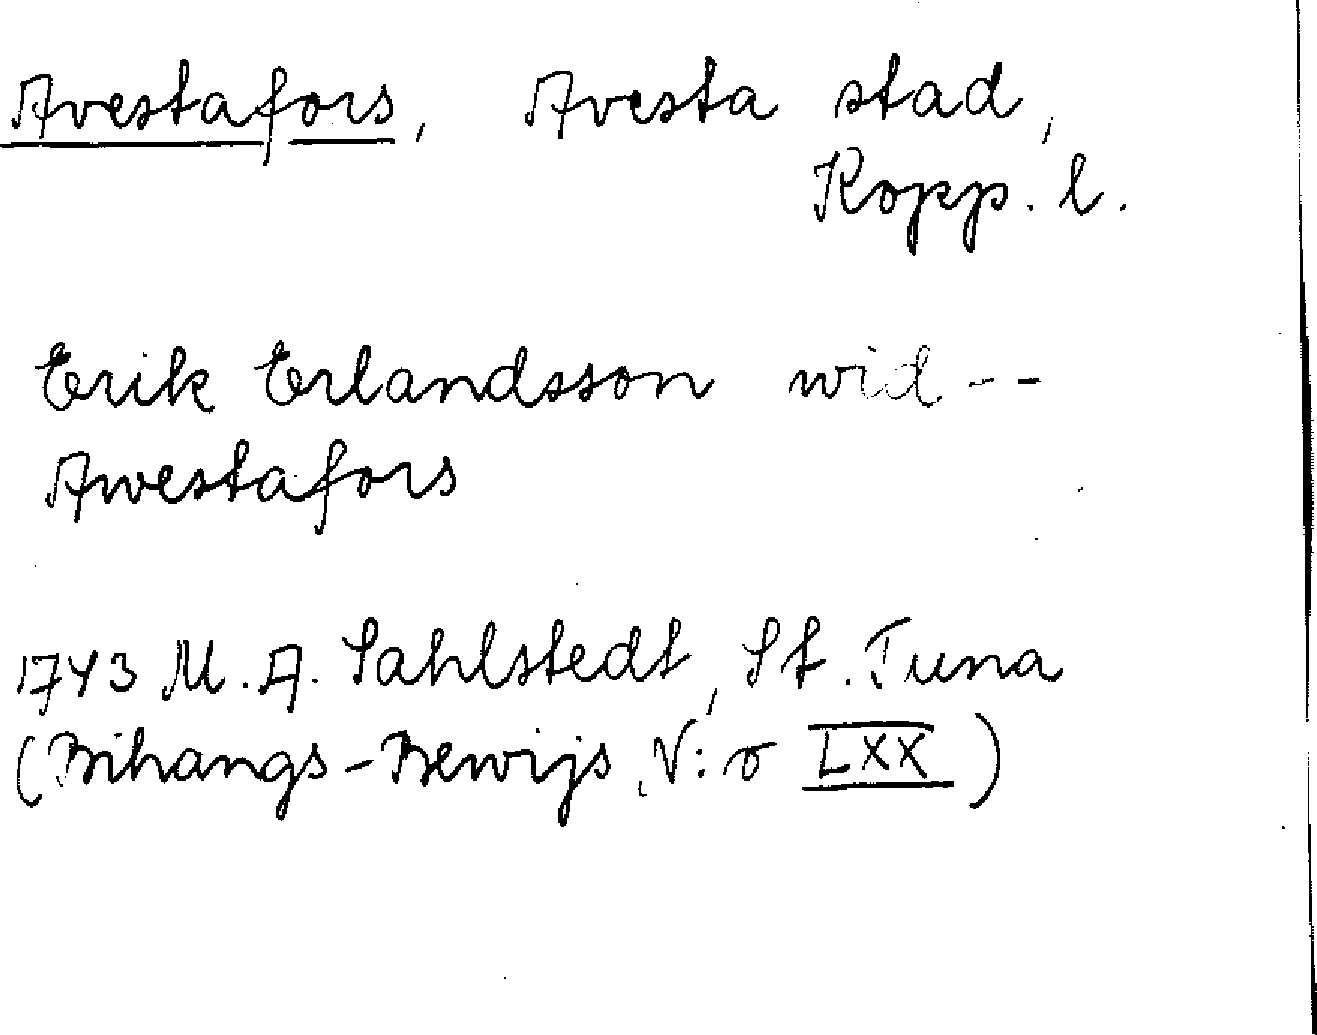 Avestafors, Avesta stad,
Kopp. l.
Erik Erlandsson wid --
Awestafors
1743 M. A. Sahlstedt, St. Tuna
(Bihangs-Bewijs, N:o LXX)